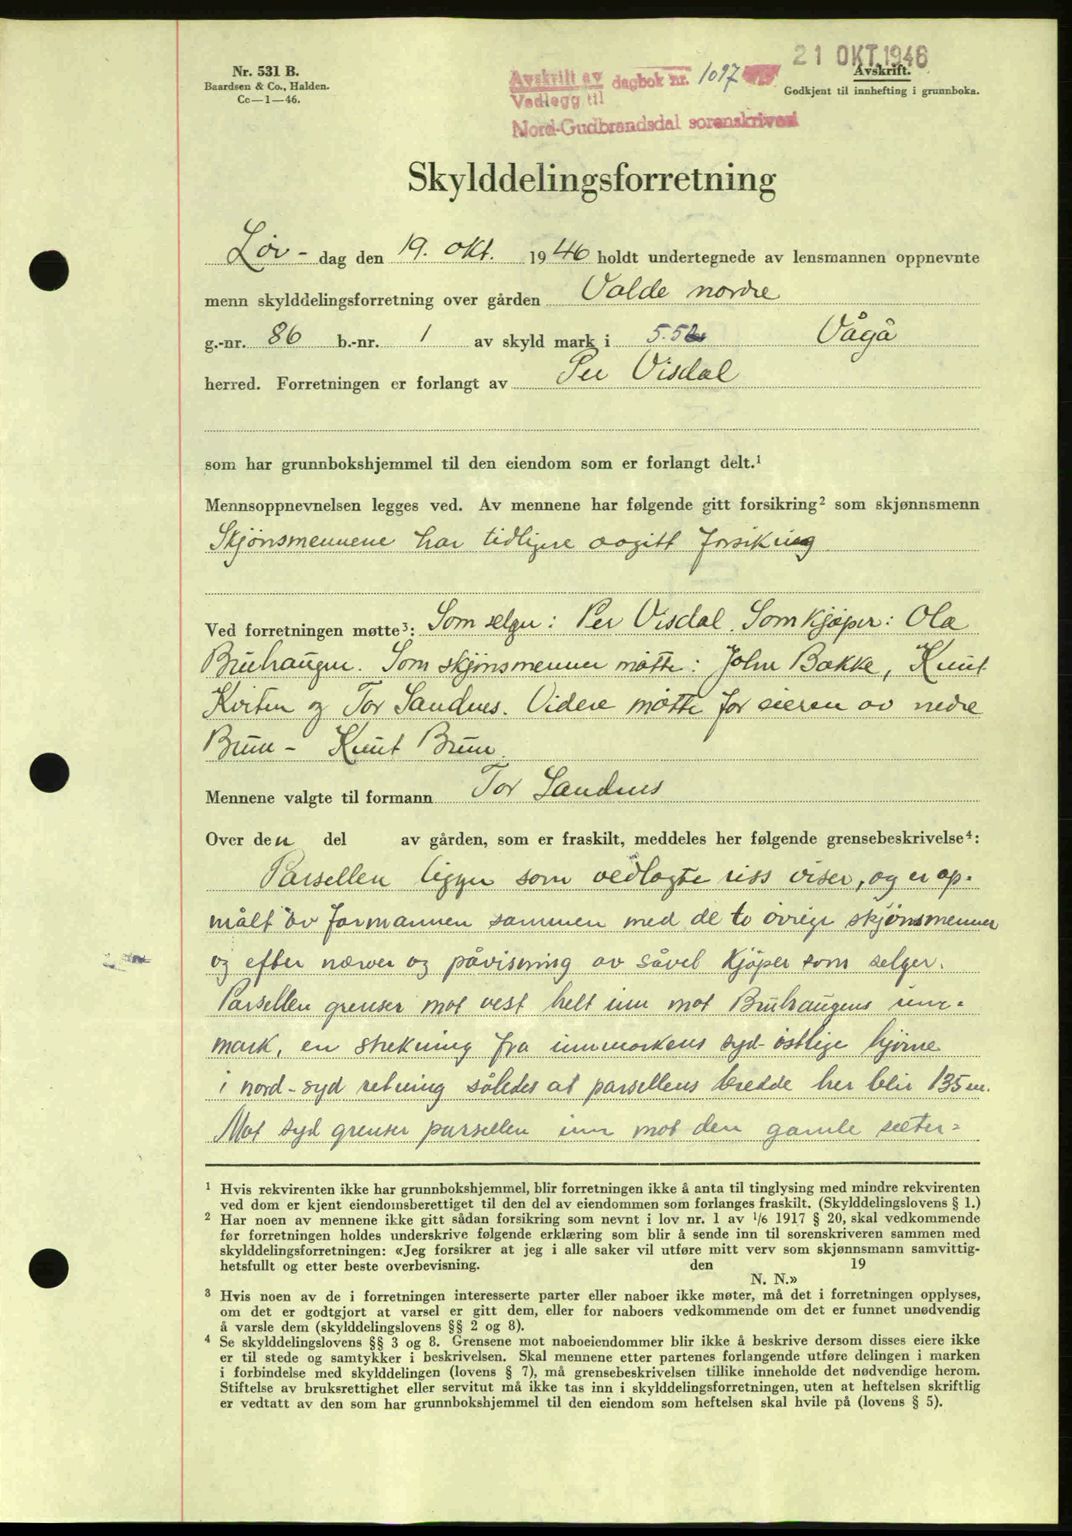 21 OKT 1946
Nr. 531 B.
Baardsen & Co., Halden.
Cc—1—46.
Avskrift av dagbok nr. 1097
Vedlegg til
Nord-Gudbrandsdal sorenskriveri
Avskrift.
Godkjent til innhefting i grunnboka.
Skylddelingsforretning
Lør- dag den 19. okt. 1946 holdt undertegnede av lensmannen oppnevnte
menn skylddelingsforretning over gården Valde nordre
g.-nr. 86 b.-nr. 1 av skyld mark i 5.52 Vågå
herred. Forretningen er forlangt av Per Visdal
som har grunnbokshjemmel til den eiendom som er forlangt delt.¹
Mennsoppnevnelsen legges ved. Av mennene har følgende gitt forsikring² som skjønnsmenn
Skjönsmennene har tidligere avgitt forsikring
Ved forretningen møtte³: Som selger: Per Visdal. Som kjöper: Ola
Bruhaugen. Som skjönsmenner møtte: John Bakke, Knut
Kviten og Tor Sandnes. Videre møtte for eieren av nedre
Bruu - Knut Bruu.
Mennene valgte til formann Tor Sandnes
Over den del av gården, som er fraskilt, meddeles her følgende grensebeskrivelse⁴:
Parsellen ligger som vedlagte riss viser, og er op-
målt av formannen sammen med de to övrige skjønsmenner
og efter nærver og påvisning av såvel kjöper som selger.
Parsellen grenser mot vest helt inn mot Bruhaugens inn-
mark, en strekning fra innmarkens syd-östlige hjörne
i nord-syd retning således at parsellens bredde her blir 135 m.
Mot syd grenser parsellen inn mot den gamle sæter-
¹ Hvis rekvirenten ikke har grunnbokshjemmel, blir forretningen ikke å anta til tinglysing med mindre rekvirenten
ved dom er kjent eiendomsberettiget til den del av eiendommen som forlanges fraskilt. (Skylddelingslovens § 1.)
² Har noen av mennene ikke gitt sådan forsikring som nevnt i lov nr. 1 av 1/6 1917 § 20, skal vedkommende
før forretningen holdes underskrive følgende erklæring som blir å sende inn til sorenskriveren sammen med
skylddelingsforretningen: «Jeg forsikrer at jeg i alle saker vil utføre mitt verv som skjønnsmann samvittig-
hetsfullt og etter beste overbevisning. den 19
N. N.»
³ Hvis noen av de i forretningen interesserte parter eller naboer ikke møter, må det i forretningen opplyses,
om det er godtgjort at varsel er gitt dem, eller for naboers vedkommende om det er funnet unødvendig
å varsle dem (skylddelingslovens §§ 2 og 8).
⁴ Se skylddelingslovens §§ 3 og 8. Grensene mot naboeiendommer blir ikke å beskrive dersom disses eiere ikke
er til stede og samtykker i beskrivelsen. Skal mennene etter partenes forlangende utføre delingen i marken
i forbindelse med skylddelingen (lovens § 7), må grensebeskrivelsen tillike inneholde det nødvendige herom.
Stiftelse av bruksrettighet eller servitut må ikke tas inn i skylddelingsforretningen, uten at heftelsen skriftlig
er vedtatt av den som har grunnbokshjemmel til den eiendom som heftelsen skal hvile på (lovens § 5).